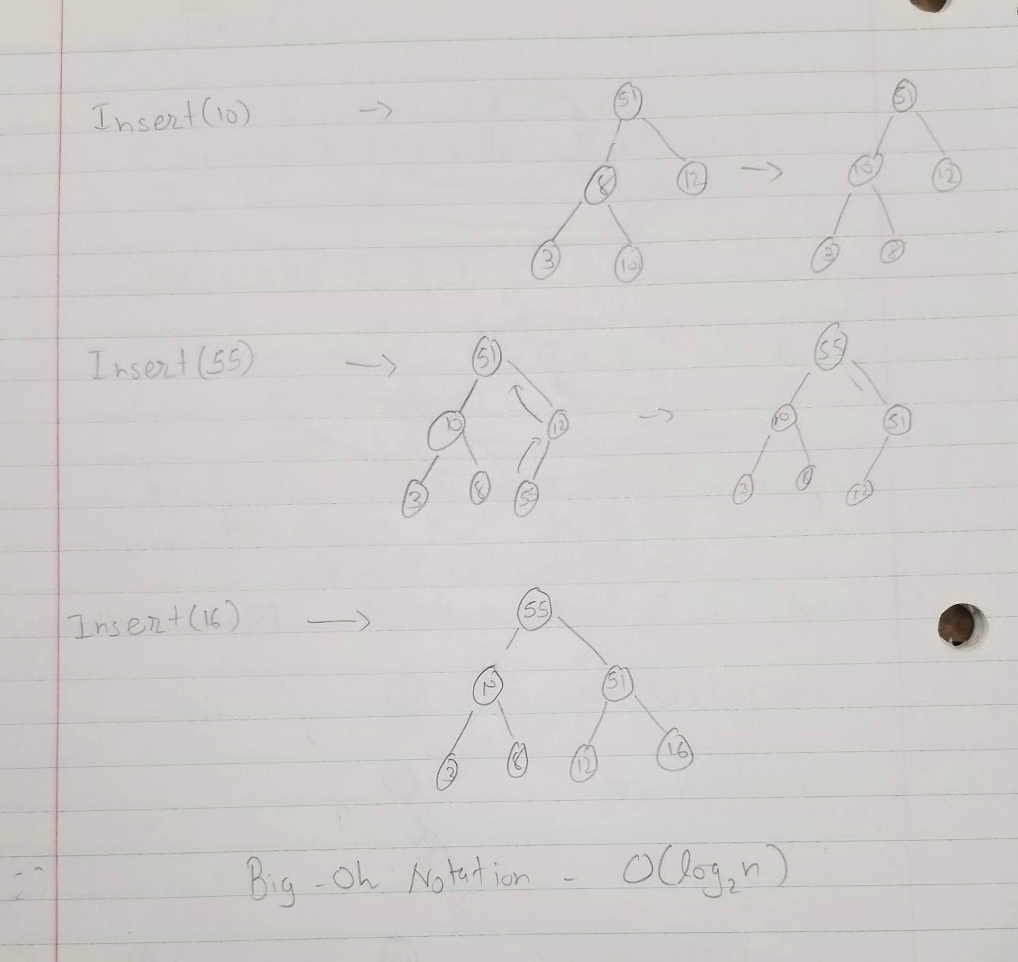 Insert(10) →
51
8 12 →
3 10
51
10 12
3 8
Insert(55) →
51
10 12 →
3 8 55
55
10 51
3 8 12
Insert(16) →
55
10 51
3 8 12 16
Big-Oh Notation - O(log₂n)